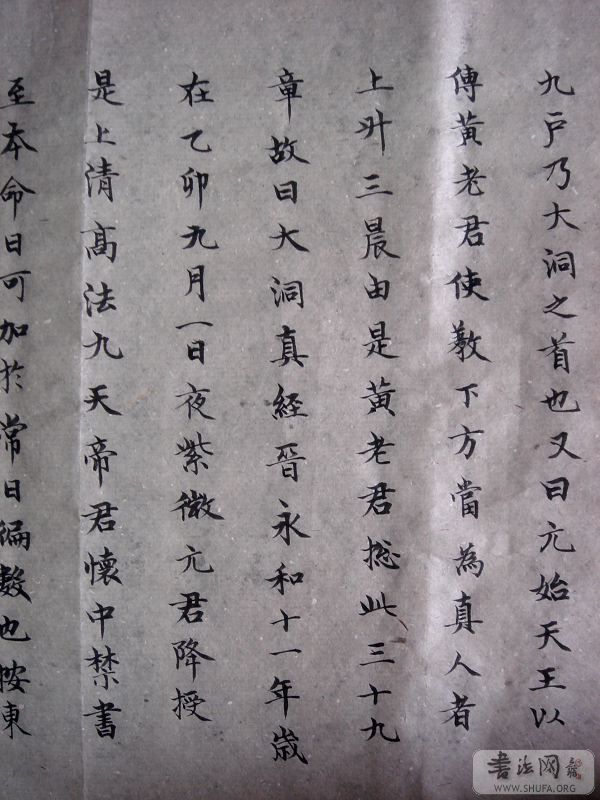 九戶乃大洞之首也又曰元始天王以
傳黃老君使教下方當為真人者
上升三晨由是黃老君揔此三十九
章故曰大洞真經晉永和十一年歲
在乙卯九月一日夜紫微元君降授
是上清高法九天帝君懷中禁書
至本命日可加於常日徧數也按東
書法网
WWW.SHUFA.ORG